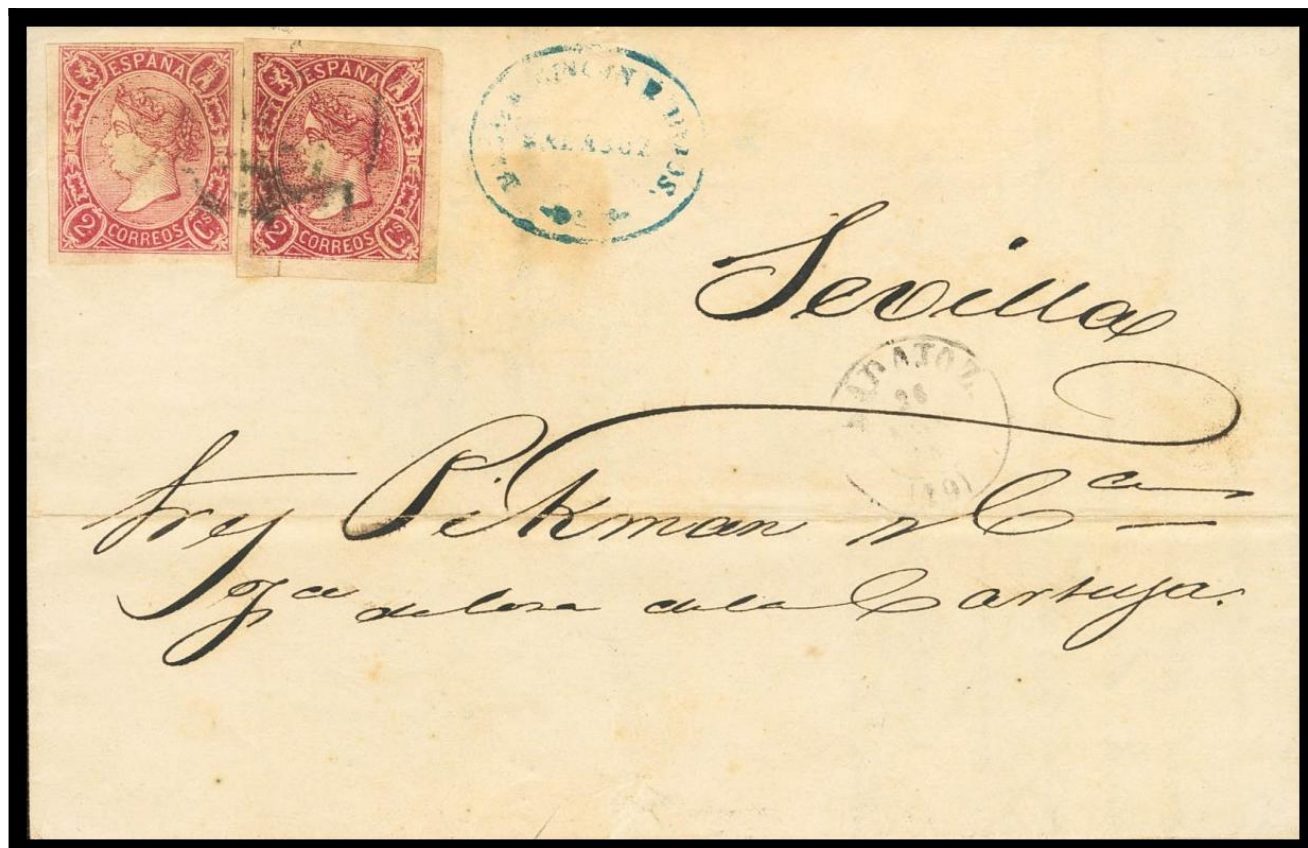 ESPAÑA
2 CORREOS Cs
ESPAÑA
2 CORREOS Cs
RINCON
BADAJOZ
Sevilla
BADAJOZ
26
(10)
Sres Pikman y Ca
de losa de la Cartuja.